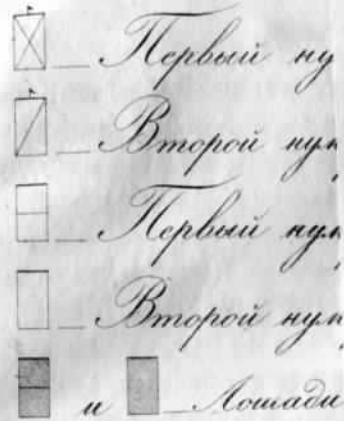 Первый ну
Второй нум
Первый нум
Второй нум
и Лошади